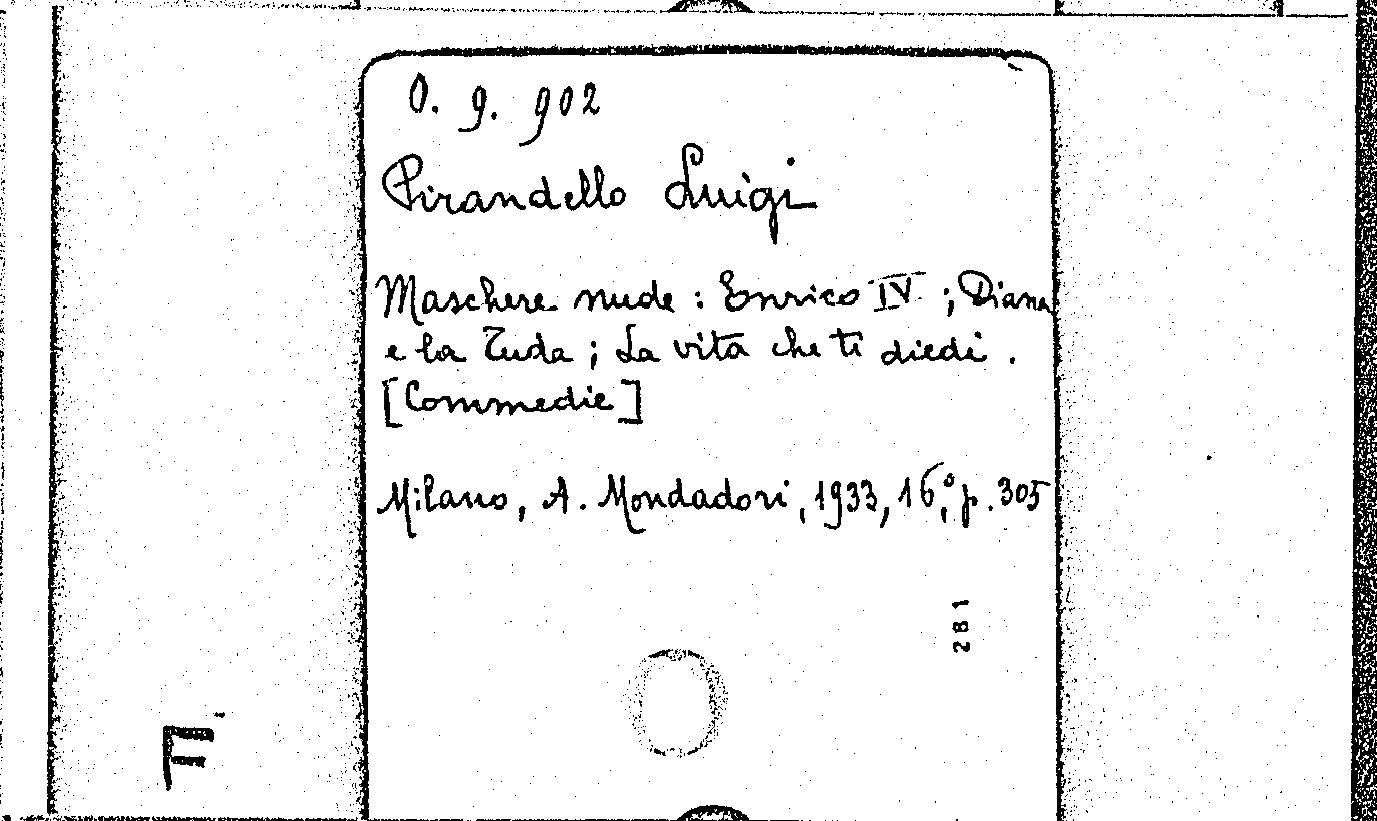 0. 9. 902
Pirandello Luigi
Maschere nude : Enrico IV ; Diana
e la Tuda ; La vita che ti diedi .
[Commedie]
Milano, A. Mondadori, 1933, 16°, p. 305
281
F